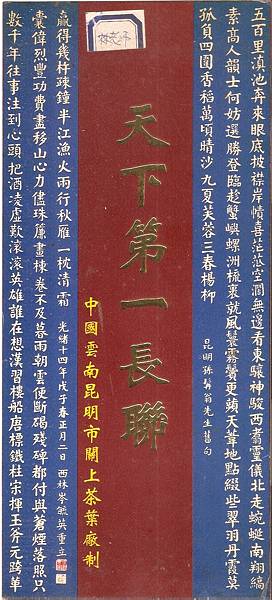 五百里滇池奔來眼底披襟岸幘喜茫茫空闊無邊看東驤神駿西翥靈儀北走蜿蜒南翔縞
素高人韻士何妨選勝登臨趁蟹嶼螺洲梳裹就風鬟霧鬢更蘋天葦地點綴些翠羽丹霞莫
孤負四圍香稻萬頃晴沙九夏芙蓉三春楊柳
昆明孫髯翁先生舊句
天下第一長聯
中國雲南昆明市關上茶葉廠制
數千年往事注到心頭把酒凌虛歎滾滾英雄誰在想漢習樓船唐標鐵柱宋揮玉斧元跨革
囊偉烈豐功費盡移山心力儘珠簾畫棟卷不及暮雨朝雲便斷碣殘碑都付與蒼煙落照只
贏得幾杵疏鐘半江漁火兩行秋雁一枕清霜
光緒十四年戊子春正月二日 西林岑毓英重立